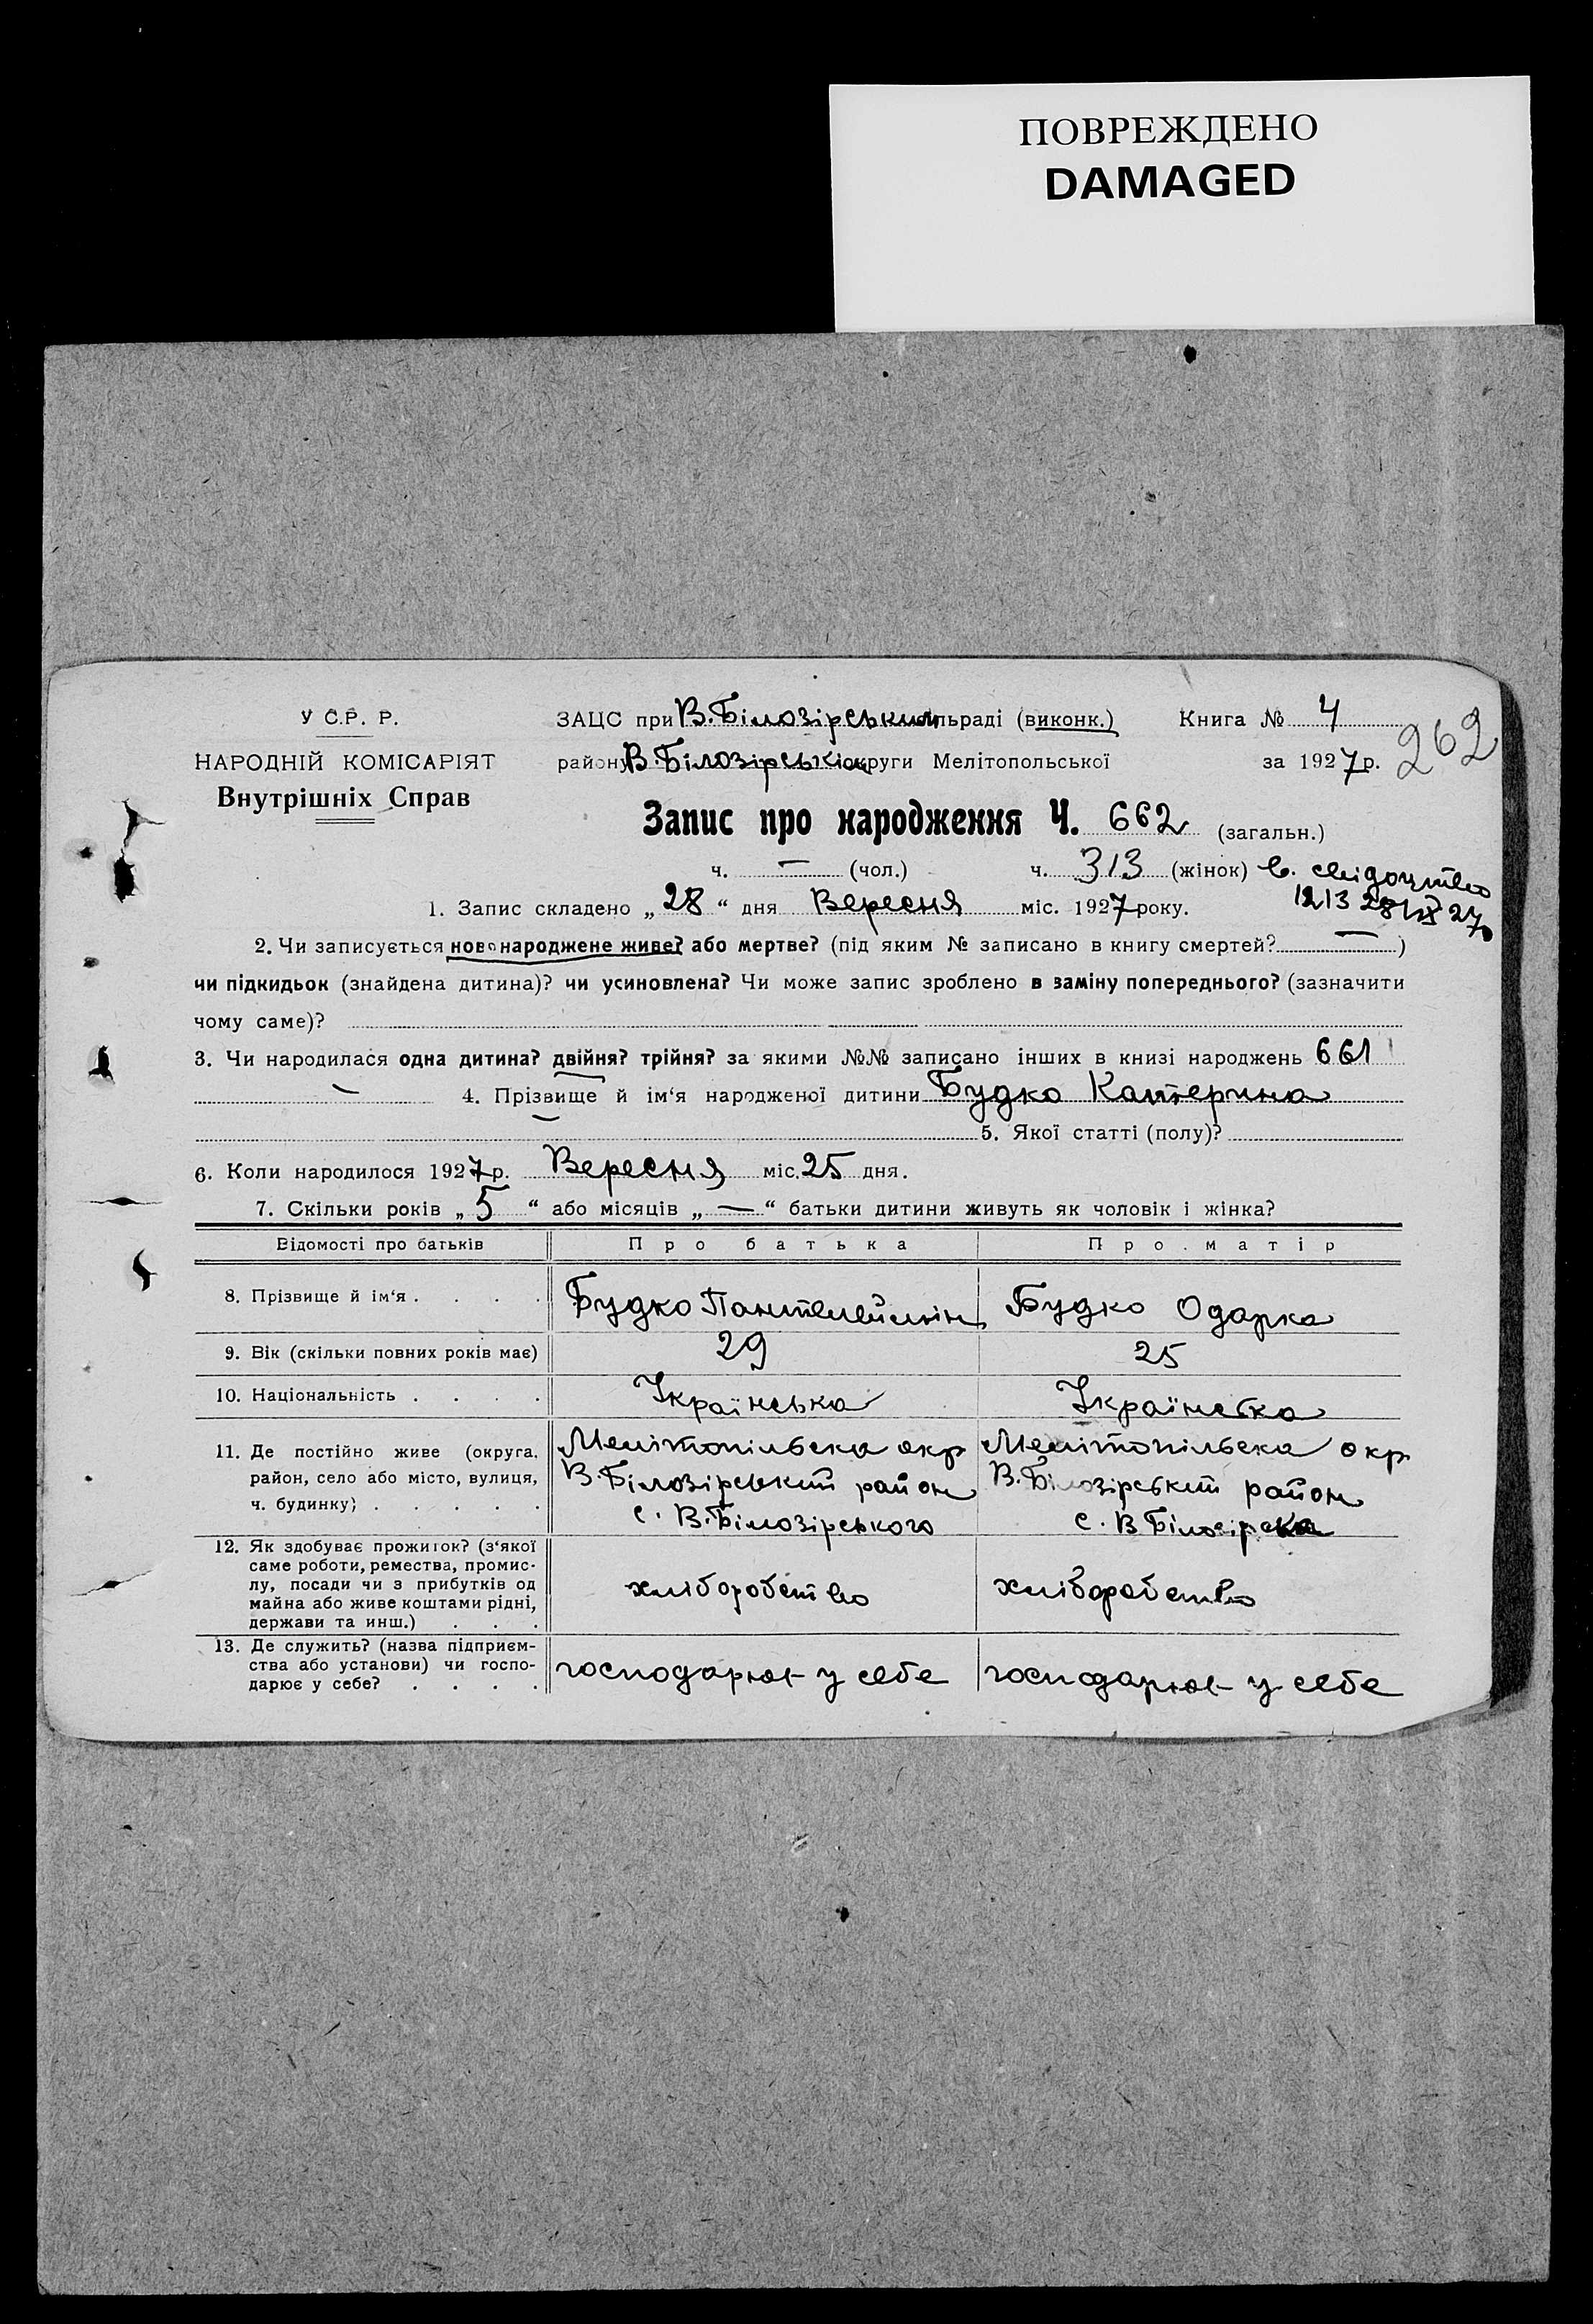 ПОВРЕЖДЕНО
DAMAGED
У С.Р. Р.
НАРОДНІЙ КОМІСАРІЯТ
Внутрішніх Справ
ЗАЦС при В.Білозірським льраді (виконк.) Книга № 4
району В.Білозірськім округи Мелітопольської за 1927 р. 262
Запис про народження Ч. 662 (загальн.)
ч. — (чол.) ч. 313 (жінок) в. свідоцтво
1213 28/IX 27
1. Запис складено „28“ дня Вересня міс. 1927 року.
2. Чи записується новонароджене живе? або мертве? (під яким № записано в книгу смертей? — )
чи підкидьок (знайдена дитина)? чи усиновлена? Чи може запис зроблено в заміну попереднього? (зазначити
чому саме)?
3. Чи народилася одна дитина? двійня? трійня? за якими №№ записано інших в книзі народжень 661
— 4. Прізвище й ім‘я народженої дитини Будко Катерина
5. Якої статті (полу)?
6. Коли народилося 1927 р. Вересня міс. 25 дня.
7. Скільки років „5“ або місяців „—“ батьки дитини живуть як чоловік і жінка?
Відомості про батьків Про батька Про матір
8. Прізвище й ім‘я . . . . Будко Пантелеймін Будко Одарка
9. Вік (скільки повних років має) 29 25
10. Національність . . . . Українська Українська
11. Де постійно живе (округа, район, село або місто, вулиця, ч. будинку) . . . . .
Мелітопільська окр
В.Білозірський район
с. В.Білозірського
Мелітопільська окр
В.Білозірський район
с. В Білозірка
12. Як здобуває прожиток? (з‘якої
саме роботи, ремества, промис-
лу, посади чи з прибутків од
майна або живе коштами рідні,
держави та инш.) . . .
хліборобство хліборобство
13. Де служить? (назва підприєм-
ства або установи) чи госпо-
дарює у себе? . . . .
господарює у себе господарює у себе